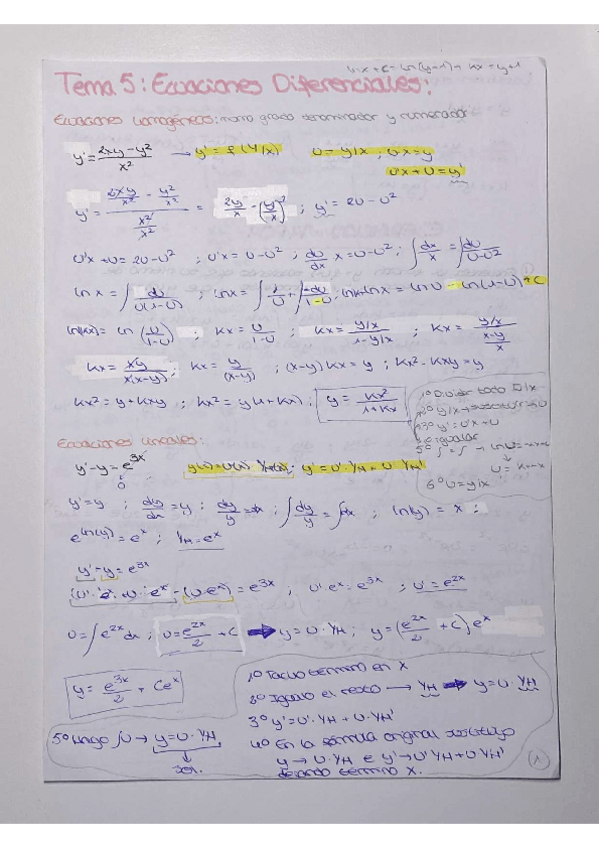 Tema 5: Ecuaciones Diferenciales:
Ecuaciones homogéneas: mismo grado denominador y numerador
y' = 2xy-y²/x² → y' = f(y/x) U = y/x ; Ux = y
U'x + U = y'
y' = (2xy/x² - y²/x²)/(x²/x²) = 2y/x - (y/x)² ; y' = 2U - U²
U'x + U = 2U - U² ; U'x = U - U² ; dU/dx x = U - U² ; ∫dx/x = ∫dU/U-U²
ln x = ∫ dU/U(1-U) ; ln x = ∫ 1/U + ∫ dU/1-U ; lnk + ln x = ln U - ln(1-U) + C
ln(kx) = ln (U/1-U) ; kx = U/1-U ; kx = y/x/1-y/x ; kx = y/x/x-y/x
kx = xy/x(x-y) ; kx = y/(x-y) ; (x-y)kx = y ; kx² - kxy = y
kx² = y + kxy ; kx² = y(1+kx) ; y = kx²/1+kx
1º Dividir todo
2º y/x → sustituir → U
3º y' = U'x + U
4º igualar
5º ∫ = ∫
6º U = y/x
Ecuaciones lineales:
y' - y = e³ˣ
0
y(x) = U(x) · yH(x) ; y' = U' · yH + U · yH'
y' = y ; dy/dx = y ; dy/y = dx ; ∫dy/y = ∫dx ; ln(y) = x ;
e^ln(y) = eˣ ; yH = eˣ
y' - y = e³ˣ
(U' · eˣ + U · eˣ) - (U · eˣ) = e³ˣ ; U' · eˣ = e³ˣ ; U' = e²ˣ
U = ∫e²ˣ dx ; U = e²ˣ/2 + C → y = U · yH ; y = (e²ˣ/2 + C) eˣ
y = e³ˣ/2 + Ceˣ
1º Tacho término en x
2º Igualo el resto → yH → y = U · yH
3º y' = U' · yH + U · yH'
4º En la fórmula original sustituyo
y → U · yH e y' → U' yH + U yH'
dejando término x.
5º Hago ∫U → y = U · yH
sol.
1